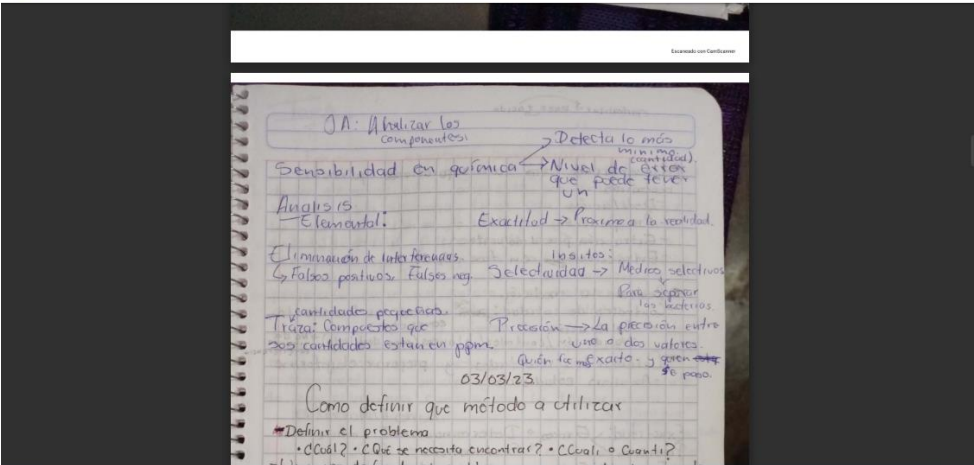 Escaneado con CamScanner
JA: Analizar los
componentes.
Sensibilidad en química
→ Detecta lo más
minimo
(cantidad).
→ Nivel de error
que puede tener
un
Analisis
Elemental:
Exactitud → Proximo a la realidad.
Eliminación de interferencias.
↳ Falsos positivos, Falsos neg.
Insitos:
Selectividad → Medios selectivos
Para separar
las bacterias.
cantidades pequeñas.
Traza: Compuestos que
sus cantidades estan en ppm.
Precisión → La precisión entre
uno o dos valores.
Quién fue mas exacto. y quien
se paso.
03/03/23
Como definir que método a utilizar
Definir el problema
• ¿Cuál? • ¿Qué se necesita encontrar? • ¿Cuali o Cuanti?